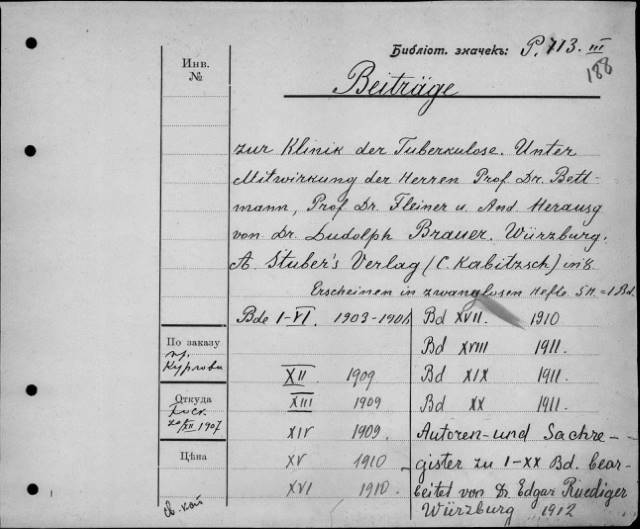 Библіот. значекъ: P. 713. III
188
Инв.
№
Beiträge
zur Klinik der Tuberkulose. Unter
Mitwirkung der Herren Prof. Dr. Bett-
mann, Prof Dr. Fleiner u. And. Herausg
von Dr. Ludolph Brauer. Würzburg.
A. Stuber's Verlag (C. Kabitzsch) in 8.
Erscheinen in zwanglosen Hefte 5 H = 1 Bd.
Bde I-VI. 1903-1906 Bd XVII. 1910
Bd XVIII 1911.
XII. 1909 Bd XIX 1911.
XIII 1909 Bd XX 1911.
XIV 1909. Autoren- und Sachre-
XV 1910 gister zu I-XX Bd. bear-
XVI 1910. beitet von Dr. Edgar Ruediger
Würzburg 1912
По заказу
пр.
Откуда
20/XII 1907
Цѣна